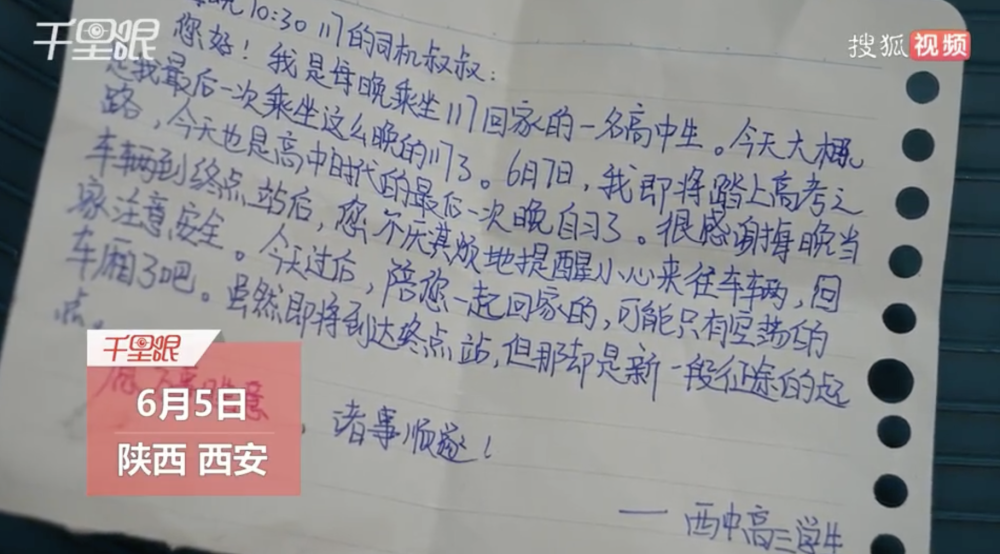 千里眼
搜狐视频
晚10:30 117的司机叔叔:
您好!我是每晚乘坐117回家的一名高中生。今天大概
是我最后一次乘坐这么晚的117了。6月7日,我即将踏上高考之
路,今天也是高中时代的最后一次晚自习了。很感谢每晚当
车辆到终点站后,您不厌其烦地提醒小心来往车辆,回
家注意安全。今天过后,陪您一起回家的,可能只有空荡的
车厢了吧。虽然即将到达终点站,但那却是新一段征途的起
点。
意
诸事顺遂!
——西中高三学生
千里眼
6月5日
陕西 西安